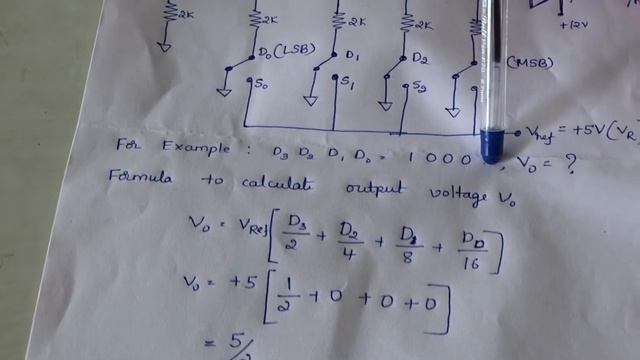 2K 2K 2K 2K +12V
D₀(LSB) D₁ D₂ (MSB)
S₀ S₁ S₂
Vref = +5V(VR
For Example : D₃ D₂ D₁ D₀ = 1 0 0 0 , V₀ = ?
Formula to calculate output voltage V₀
V₀ = VRef [ D₃/2 + D₂/4 + D₁/8 + D₀/16 ]
V₀ = +5 [ 1/2 + 0 + 0 + 0 ]
= 5/